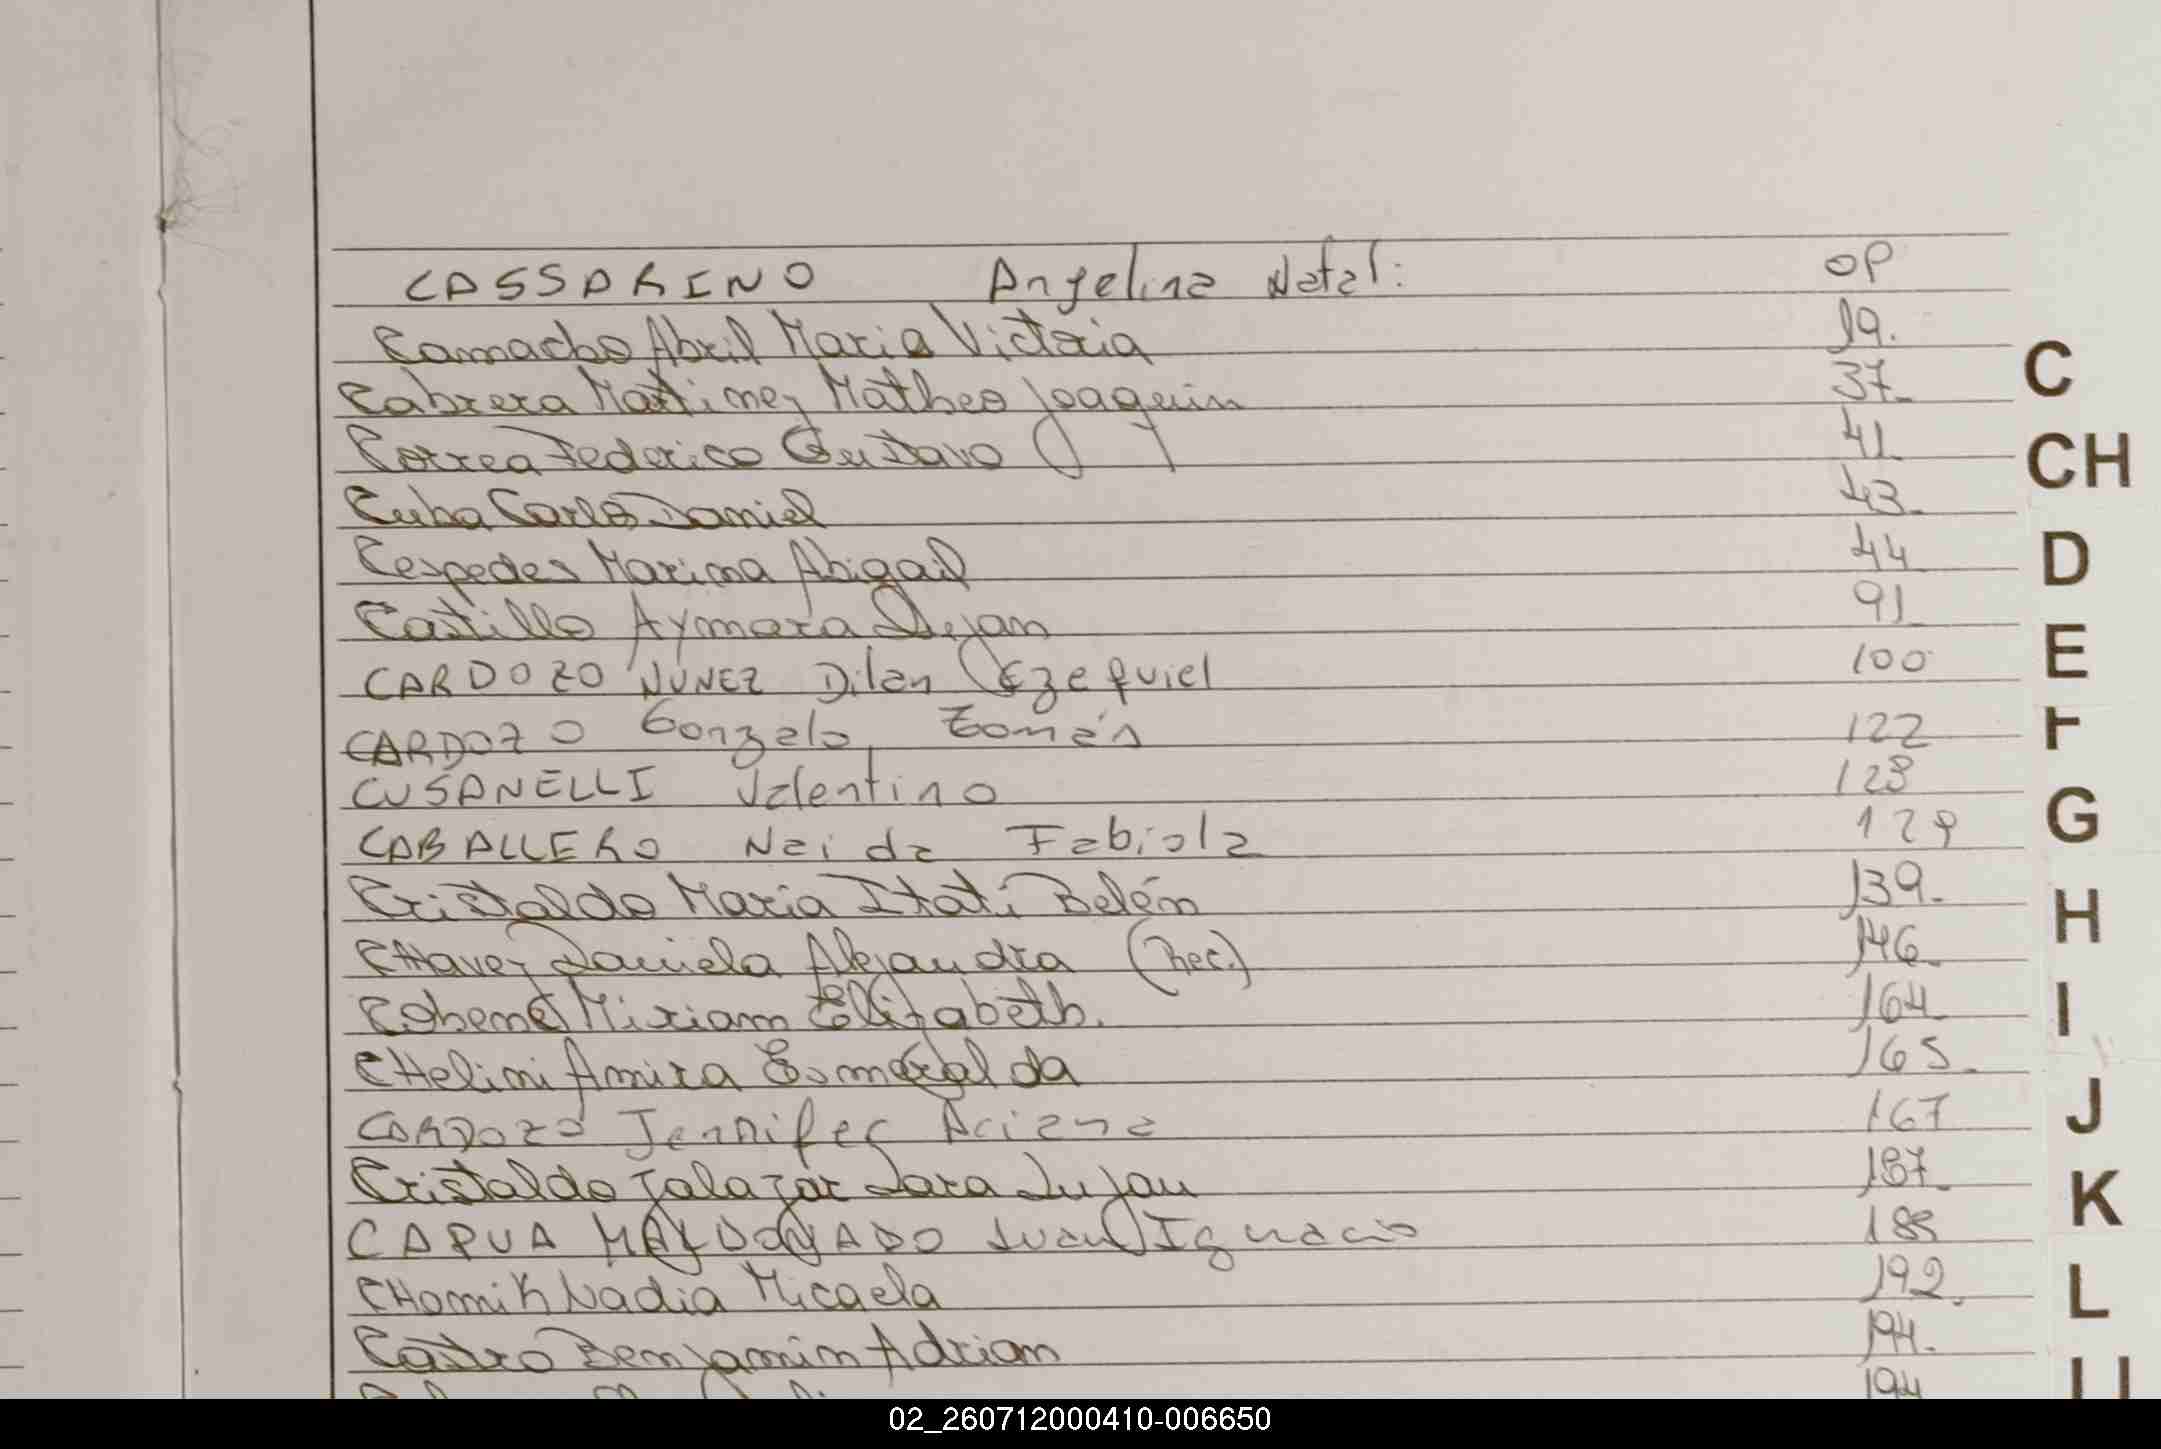 CASSARINO Angelina Natal: OP
Camacho Abril Maria Victoria 19.
Cabrera Martinez Matheo Joaquin 37.
Correa Federico Gustavo 41
Cuba Carlos Daniel 43.
Cespedes Marina Abigail 44
Castillo Aymara Lujan 91
CARDOZO NUNEZ Dilan Ezequiel 100
CARDOZO Gonzalo Tomás 122
CUSANELLI Valentino 128
CABALLERO Neida Fabiola 129
Cristaldo Maria Itatí Belén 139.
CHavez Daniela Alejandra (Rec.) 146.
Miriam Elizabeth. 164
CHelini Amira Esmeralda 165.
CARDOZO Jennifer Ariana 167
Cristaldo Salazar Lara Lujan 187.
CAPUA MALDONADO Juan Ignacio 188
CHomik Nadia Micaela 192.
Castro Benjamin Adrian 194.
194
C
CH
D
E
F
G
H
I
J
K
L
02_260712000410-006650